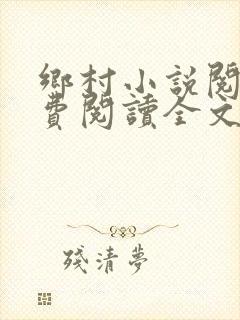 鄉村小說閱
費閱讀全文
殘清夢